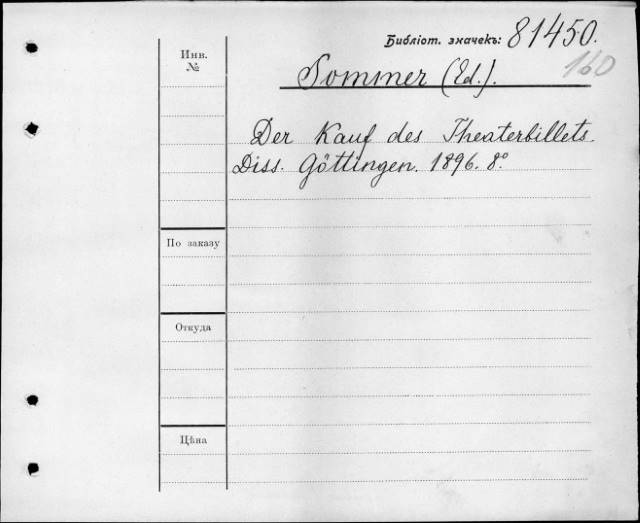 Библіот. значекъ: 81450.
160
Инв. №
Sommer (Ed.).
Der Kauf des Theaterbillets.
Diss. Göttingen. 1896. 8º
По заказу
Откуда
Цѣна